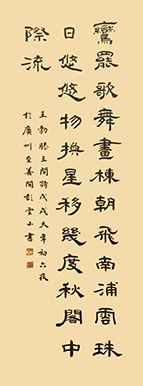 鸞罷歌舞畫棟朝飛南浦雲珠
日悠悠物換星移幾度秋閣中
際流
王勃滕王閣詩戊戌大年初六夜
於廣州至善閣彭雲山書